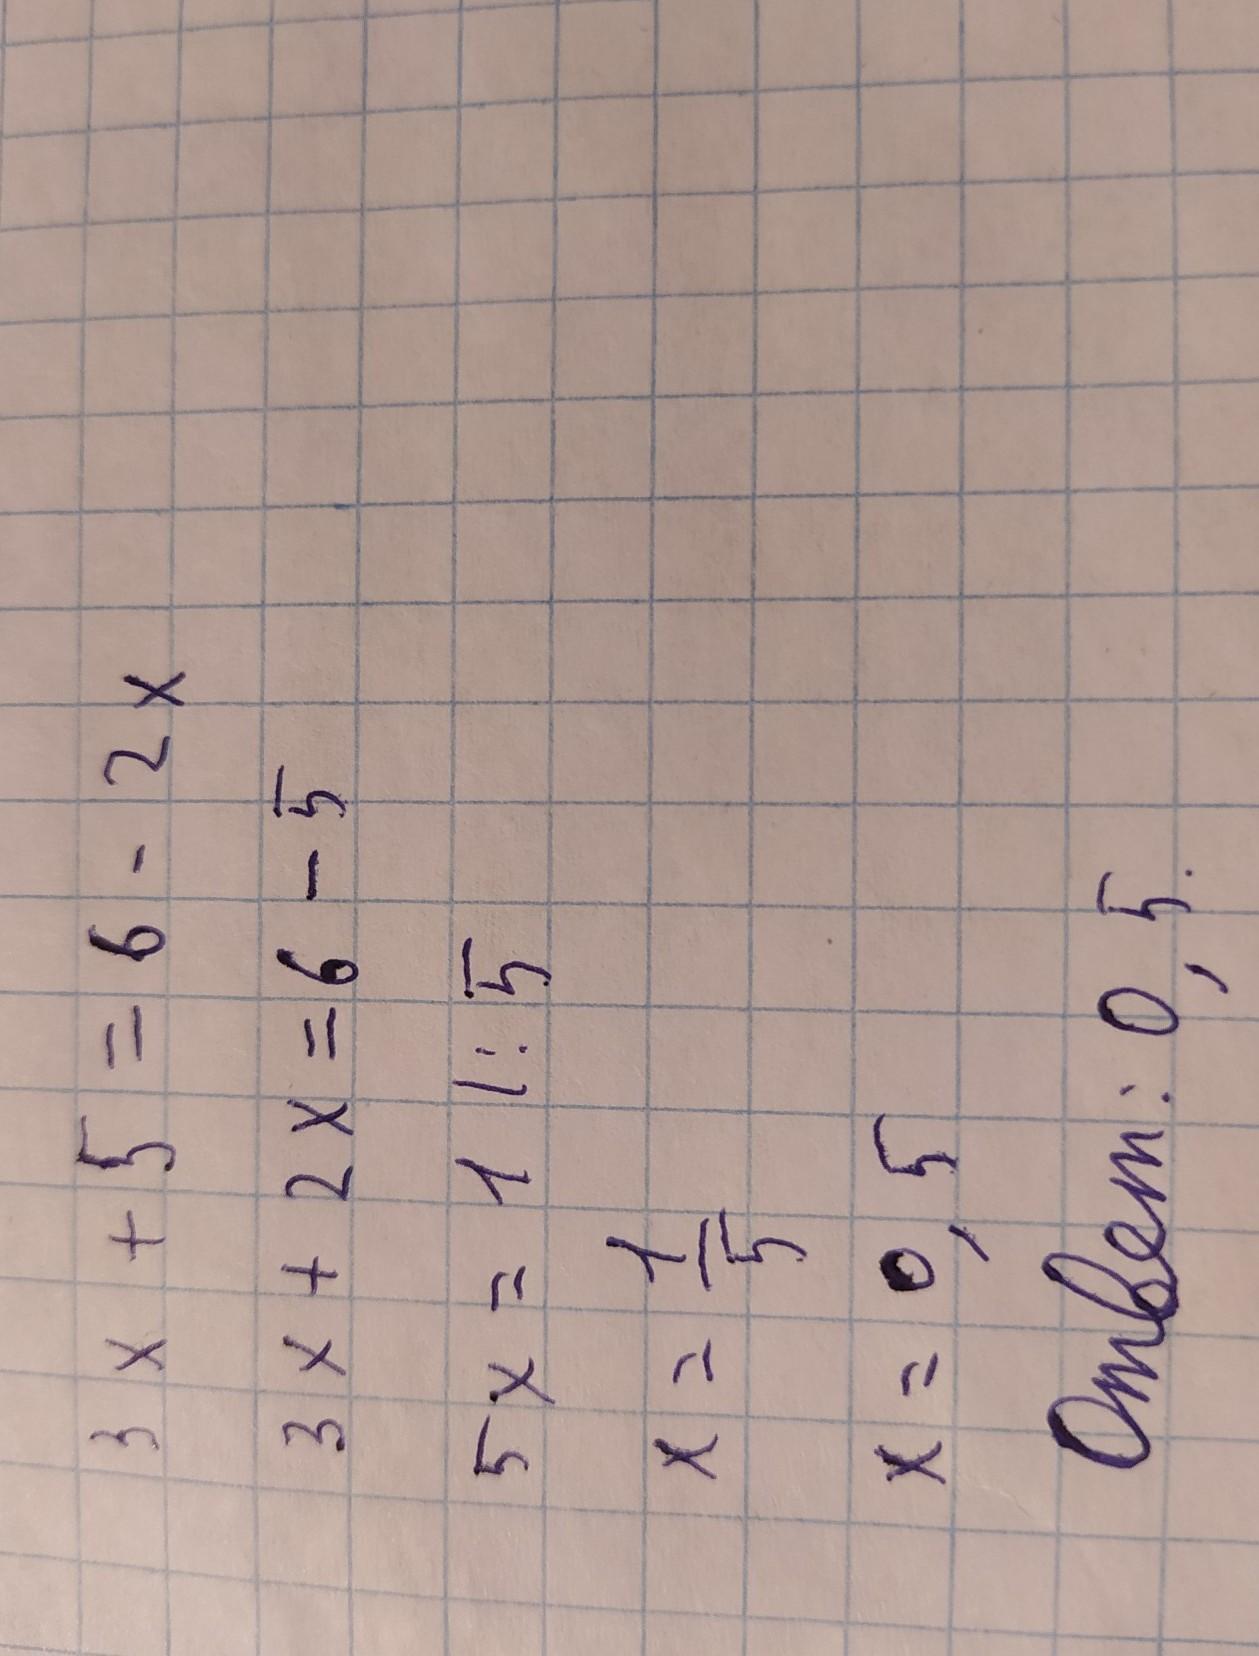 3x + 5 = 6 - 2x
3x + 2x = 6 - 5
5x = 1 |:5
x = 1/5
x = 0,5
Ответ: 0,5.